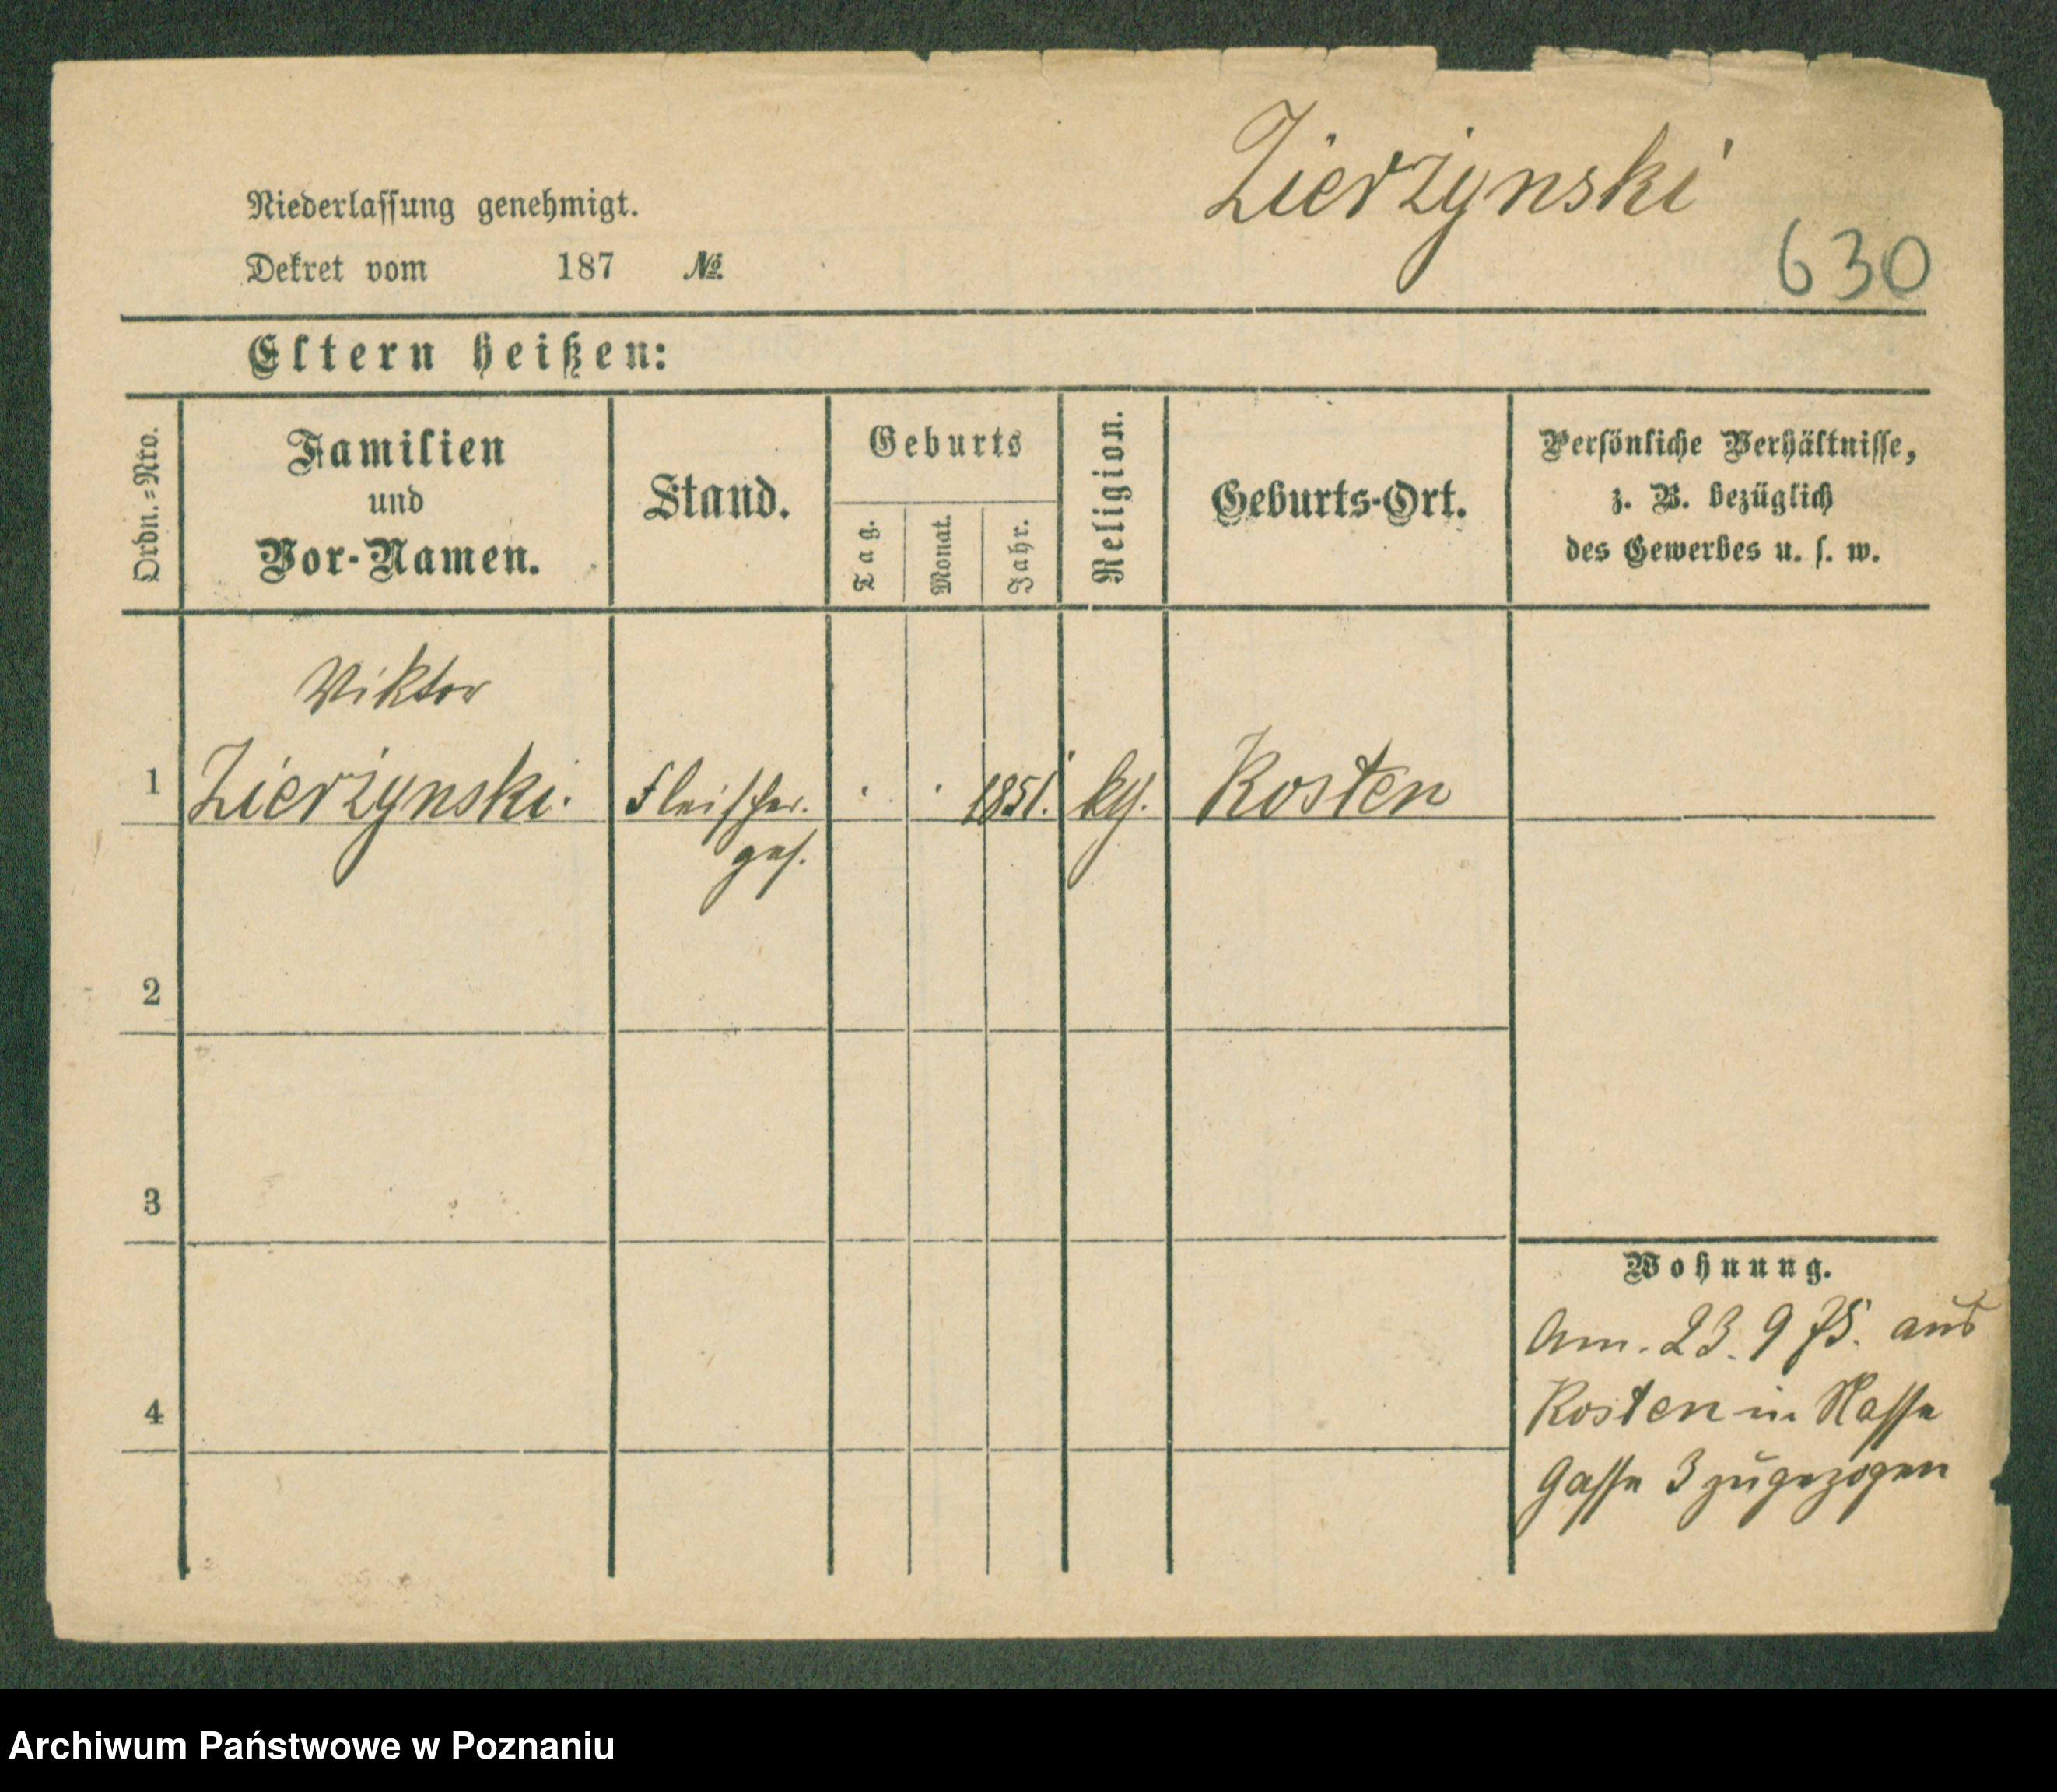 Zierzynski
630
Niederlassung genehmigt.
Dekret vom 187 №
Eltern heißen:
Ordn.-Nro.
Familien
und
Vor-Namen.
Stand.
Geburts
Tag.
Monat.
Jahr.
Religion.
Geburts-Ort.
Persönliche Verhältnisse,
z. B. bezüglich
des Gewerbes u. s. w.
Viktor
1 Zierzynski. Fleischer. 1851. Kosten
ges.
2
3
4
Wohnung.
Am. 23. 9 75. aus
Kosten in Nasse
Gasse 3 zugezogen
Archiwum Państwowe w Poznaniu